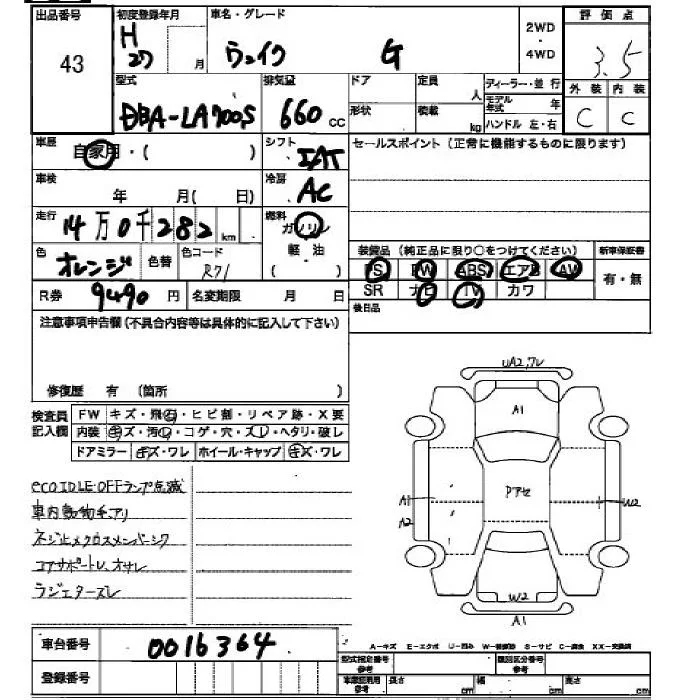 出品番号
43
初度登録年月
H
27 月
車名・グレード
ウェイク G
2WD
・
4WD
評価点
3.5
外装 内装
C C
型式
DBA-LA700S
排気量
660 CC
ドア
定員
人
形状
積載
kg
ディーラー・並行
モデル年式 年
ハンドル 左・右
車歴
自家用・( )
シフト
IAT
セールスポイント(正常に機能するものに限ります)
車検
年 月( 日)
冷房
AC
走行
14万0千282 km
燃料
ガソリン
軽・油
色
オレンジ
色替
色コード
R71
装備品(純正品に限り○をつけてください)
新車保証書
PS PW ABS エアB AW
SR ナビ TV カワ
有・無
R券
9490 円
名変期限 月 日
後日品
注意事項申告欄(不具合内容等は具体的に記入して下さい)
修復歴 有 (箇所 )
検査員
記入欄
FW キズ・飛石・ヒビ割・リペア跡・X要
内装 キズ・汚レ・コゲ・穴・スレ・ヘタリ・破レ
ドアミラー キズ・ワレ ホイール・キャップ キズ・ワレ
eco IDLE・OFFランプ点滅
車内動物毛アリ
ネジ止メクロスメンバーシワ
コアサポートレ、オサレ
ラジエターズレ
UA2,ワレ
A1
Pアセ
A1
A2
W2
W2
A1
車台番号
0016364
登録番号
A-キズ E-エクボ U-凹み W-補修跡 S-サビ C-腐食 XX-交換済
型式指定番号
参考
類別区分番号
参考
車検証明用
参考
長さ cm
幅 cm
高さ cm